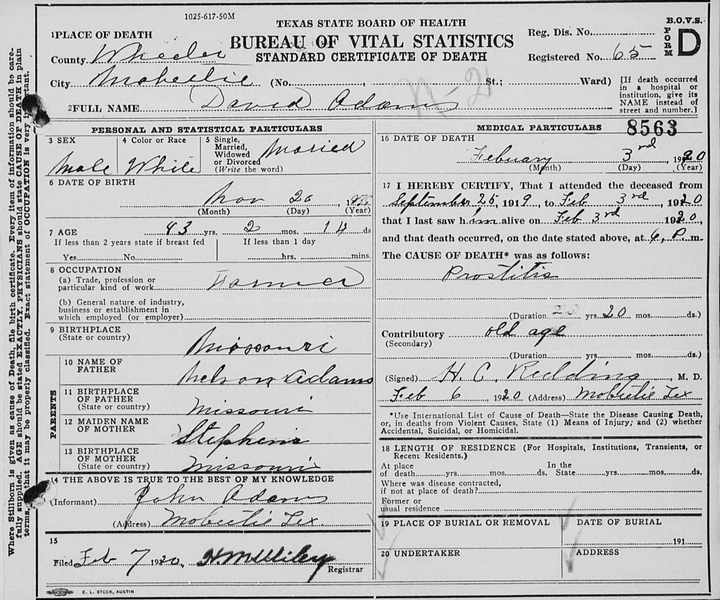 1025-617-50M
TEXAS STATE BOARD OF HEALTH
BUREAU OF VITAL STATISTICS
STANDARD CERTIFICATE OF DEATH
B.O.V.S.
FORM D
Reg. Dis. No.
Registered No. 65
1 PLACE OF DEATH
County Wheeler
City Mobeetie (No. St.; Ward)
[If death occurred in a hospital or institution, give its NAME instead of street and number.]
2 FULL NAME David Adams
PERSONAL AND STATISTICAL PARTICULARS
3 SEX Male
4 Color or Race White
5 Single, Married, Widowed or Divorced (Write the word) Married
6 DATE OF BIRTH
Nov 20
(Month) (Day) (Year)
7 AGE 93 yrs. 2 mos. 14 ds
If less than 2 years state if breast fed
Yes No
If less than 1 day
hrs. mins.
8 OCCUPATION
(a) Trade, profession or particular kind of work Farmer
(b) General nature of industry, business or establishment in which employed (or employer)
9 BIRTHPLACE
(State or country) Missouri
PARENTS
10 NAME OF FATHER Nelson Adams
11 BIRTHPLACE OF FATHER (State or country) Missouri
12 MAIDEN NAME OF MOTHER Stephens
13 BIRTHPLACE OF MOTHER (State or country) Missouri
14 THE ABOVE IS TRUE TO THE BEST OF MY KNOWLEDGE
(Informant) John Adams
(Address) Mobeetie Tex.
15
Filed Feb 7 1920 H. M. Wiley
Registrar
MEDICAL PARTICULARS 8563
16 DATE OF DEATH
Febuary 3rd 1920
(Month) (Day) (Year)
17 I HEREBY CERTIFY, That I attended the deceased from
September 25, 1919, to Feb 3rd, 1920
that I last saw him alive on Feb 3rd 1920,
and that death occurred, on the date stated above, at 6, P. m.
The CAUSE OF DEATH* was as follows:
Prostitis
(Duration 20 yrs. 20 mos. ds.)
Contributory old age
(Secondary)
(Duration yrs. mos. ds.)
(Signed) H. C. Redding, M. D.
Feb 6 1920 (Address) Mobeetie Tex
*Use International List of Cause of Death—State the Disease Causing Death, or, in deaths from Violent Causes, State (1) Means of Injury; and (2) whether Accidental, Suicidal, or Homicidal.
18 LENGTH OF RESIDENCE (For Hospitals, Institutions, Transients, or Recent Residents.)
At place of death yrs. mos. ds. In the State yrs. mos. ds.
Where was disease contracted, if not at place of death?
Former or usual residence
19 PLACE OF BURIAL OR REMOVAL
DATE OF BURIAL
191
20 UNDERTAKER
ADDRESS
E. L. STECK, AUSTIN
Where Stillborn is given as cause of Death, file birth certificate. Every item of information should be carefully supplied. AGE should be stated EXACTLY, PHYSICIANS should state CAUSE OF DEATH in plain terms, that it may be properly classified. Exact statement of OCCUPATION is very important.